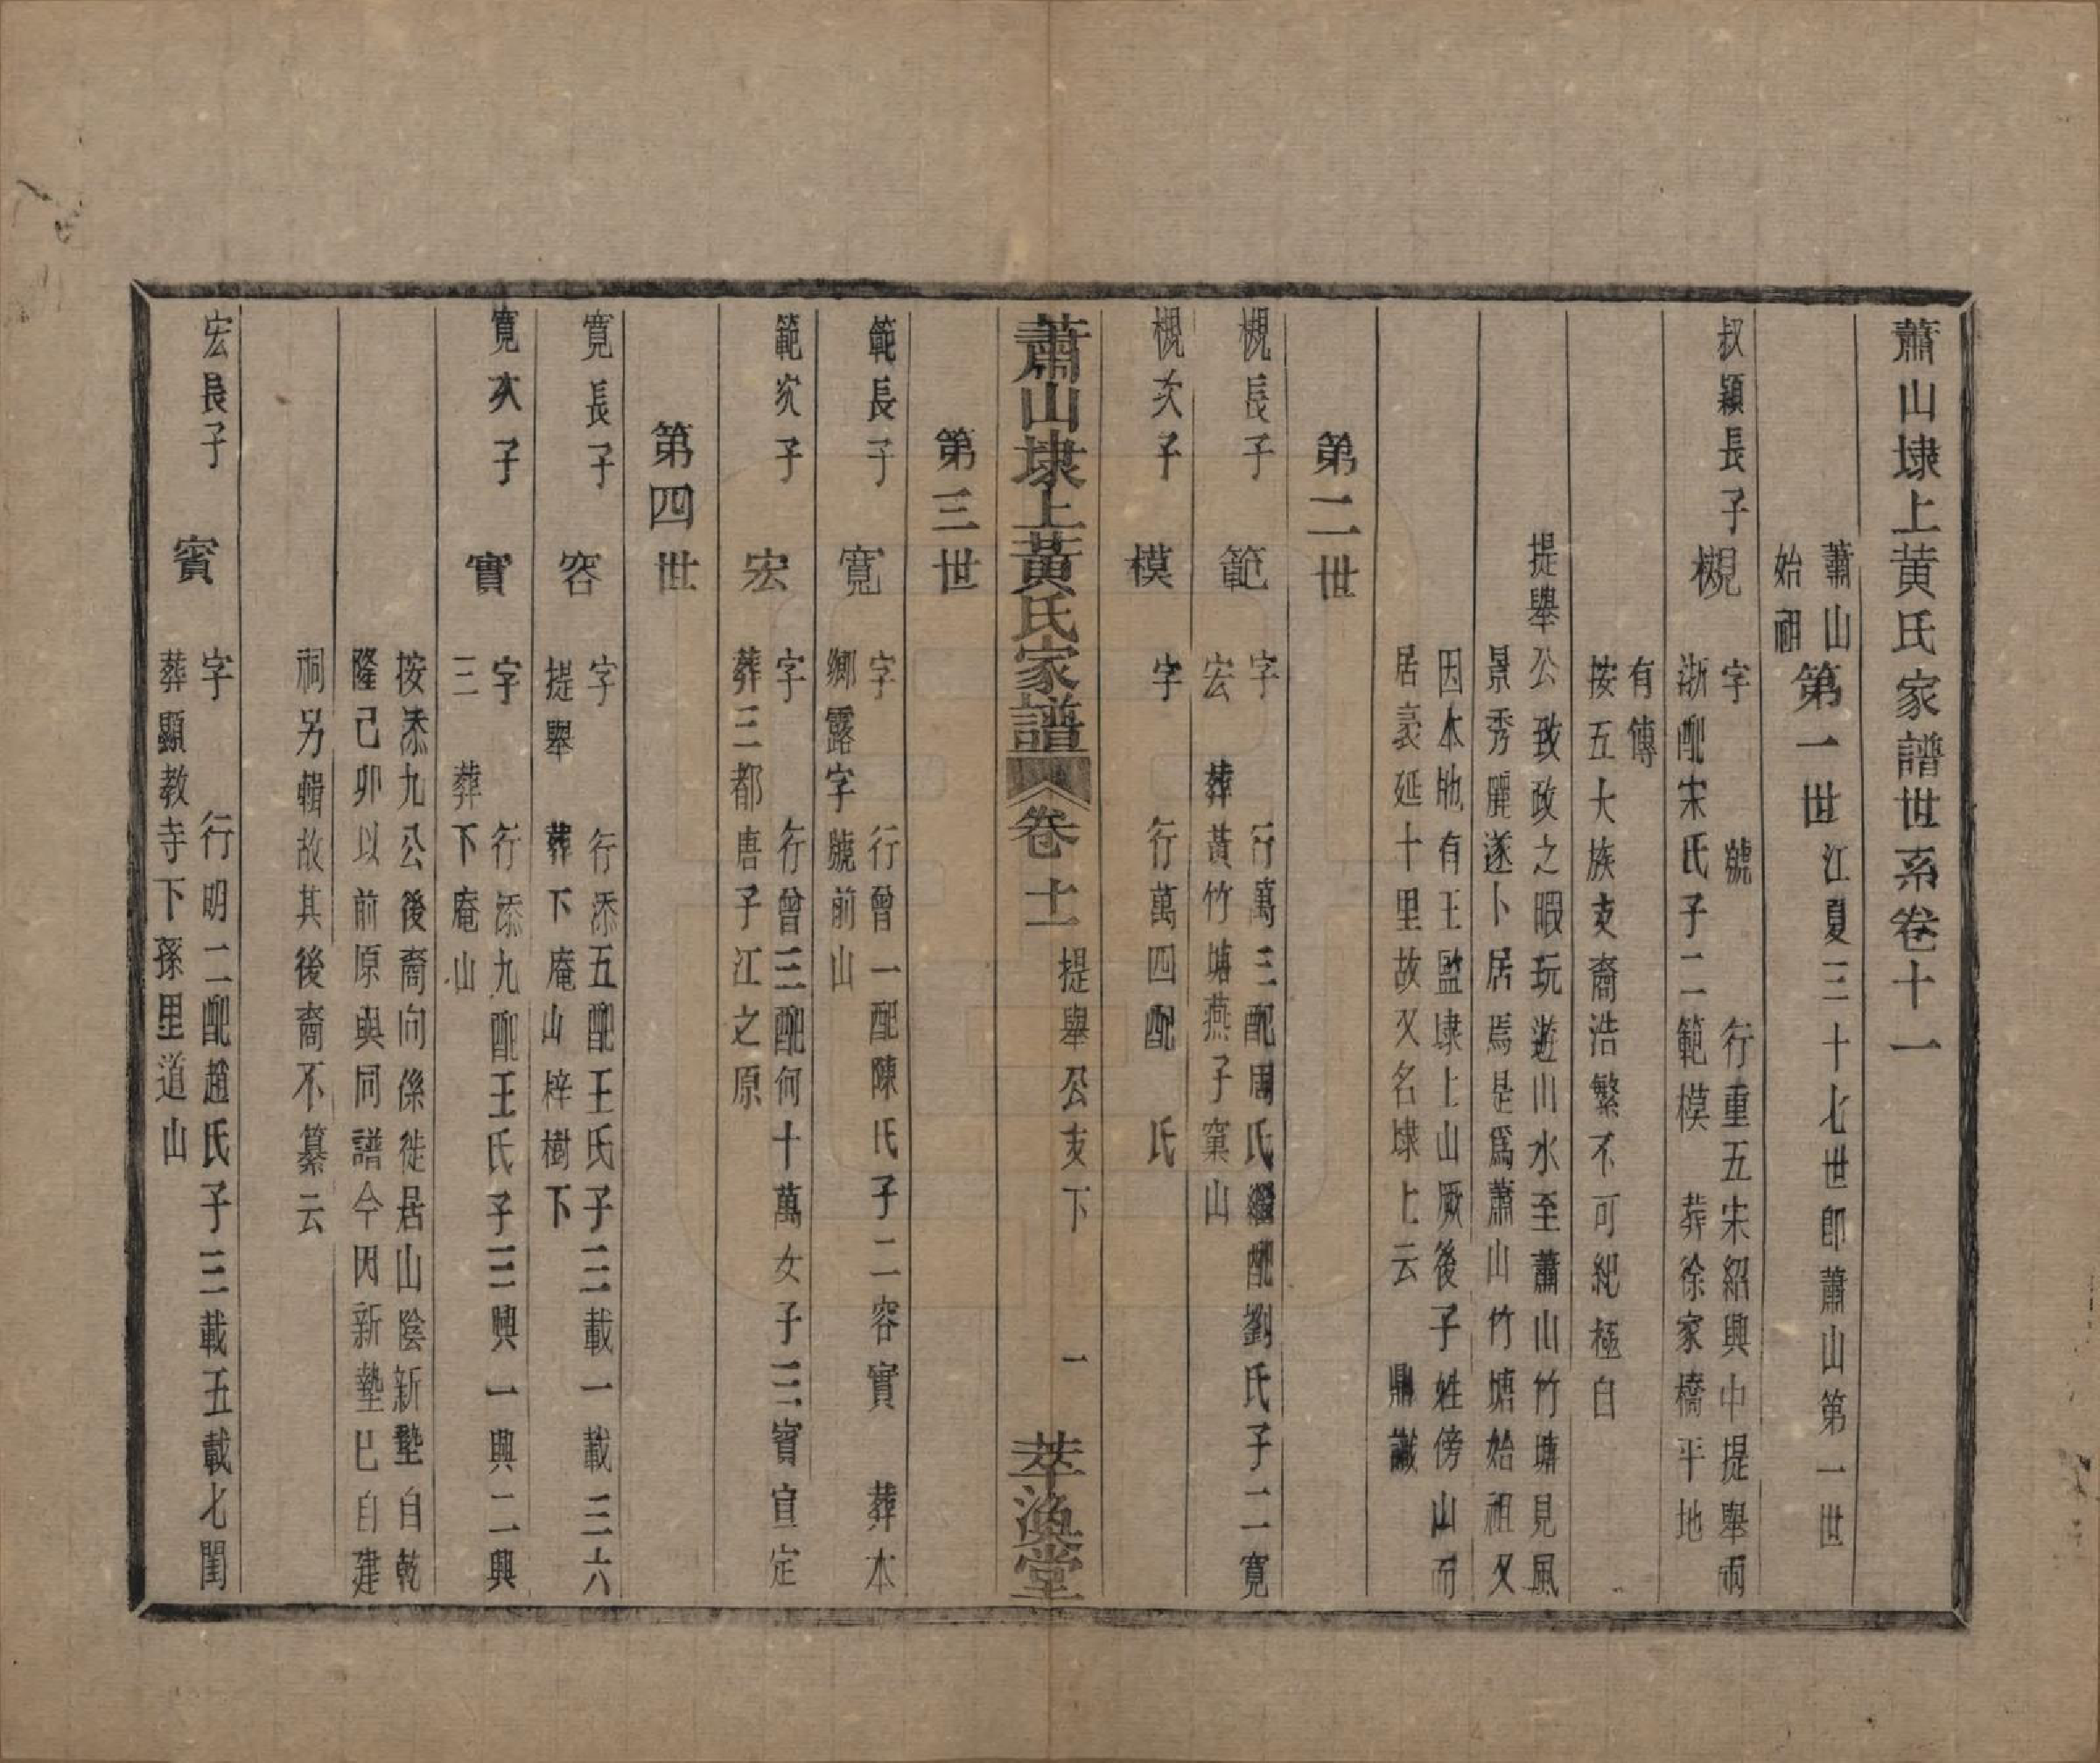 蕭山埭上黄氏家譜世系卷十一
蕭山
始祖
第一世
江夏三十七世卽蕭山第一世
叔穎長子
槻
字　號　行重五宋紹興中提舉兩
浙配宋氏子二範模　葬徐家橋平地
有傳
按五大族支裔浩繁不可紀極白
提舉公致政之暇玩遊山水至蕭山竹塘見風
景秀麗遂卜居焉是爲蕭山竹塘始祖又
因本地有王監埭上山厥後子姓傍山而
居袤延十里故又名埭上云　鼎識
第二世
槻長子
範
字　行萬三配周氏繼配劉氏子二寬
宏　葬黃竹塘燕子窠山
槻次子
模
字　行萬四配　氏
蕭山埭上黃氏家譜
卷十一
提舉公支下
一
萃渙堂
第三世
範長子
寬
字　行曾一配陳氏子二容實　葬本
鄉露字號前山
範次子
宏
字　行曾三配何十萬女子三賓宣定
葬三都唐子江之原
第四世
寬長子
容
字　行添五配王氏子三載一載三六
提舉　葬下庵山梓樹下
寬次子
實
字　行添九配王氏子三興一興二興
三　葬下庵山
按添九公後裔向係徙居山陰新墊自乾
隆己卯以前原與同譜今因新墊已自建
祠另輯故其後裔不纂云
宏長子
賓
字　行明二配趙氏子三載五載七閏
葬顯教寺下孫里道山